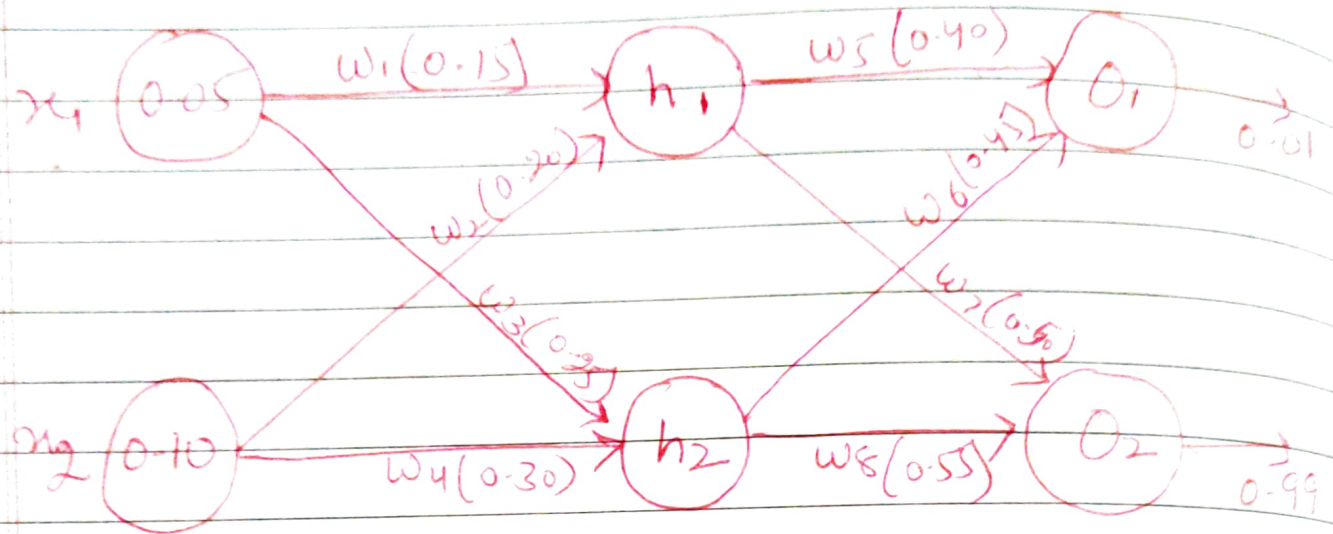 x₁ 0.05 w₁(0.15) h₁ w5(0.40) O₁ 0.01
w₂(0.20) w6(0.45)
w3(0.25) w7(0.50)
x2 0.10 w4(0.30) h2 w8(0.55) O2 0.99